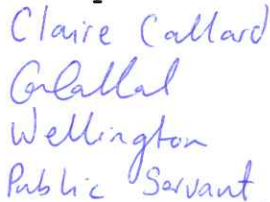 Claire Callard
Wellington
Public Servant